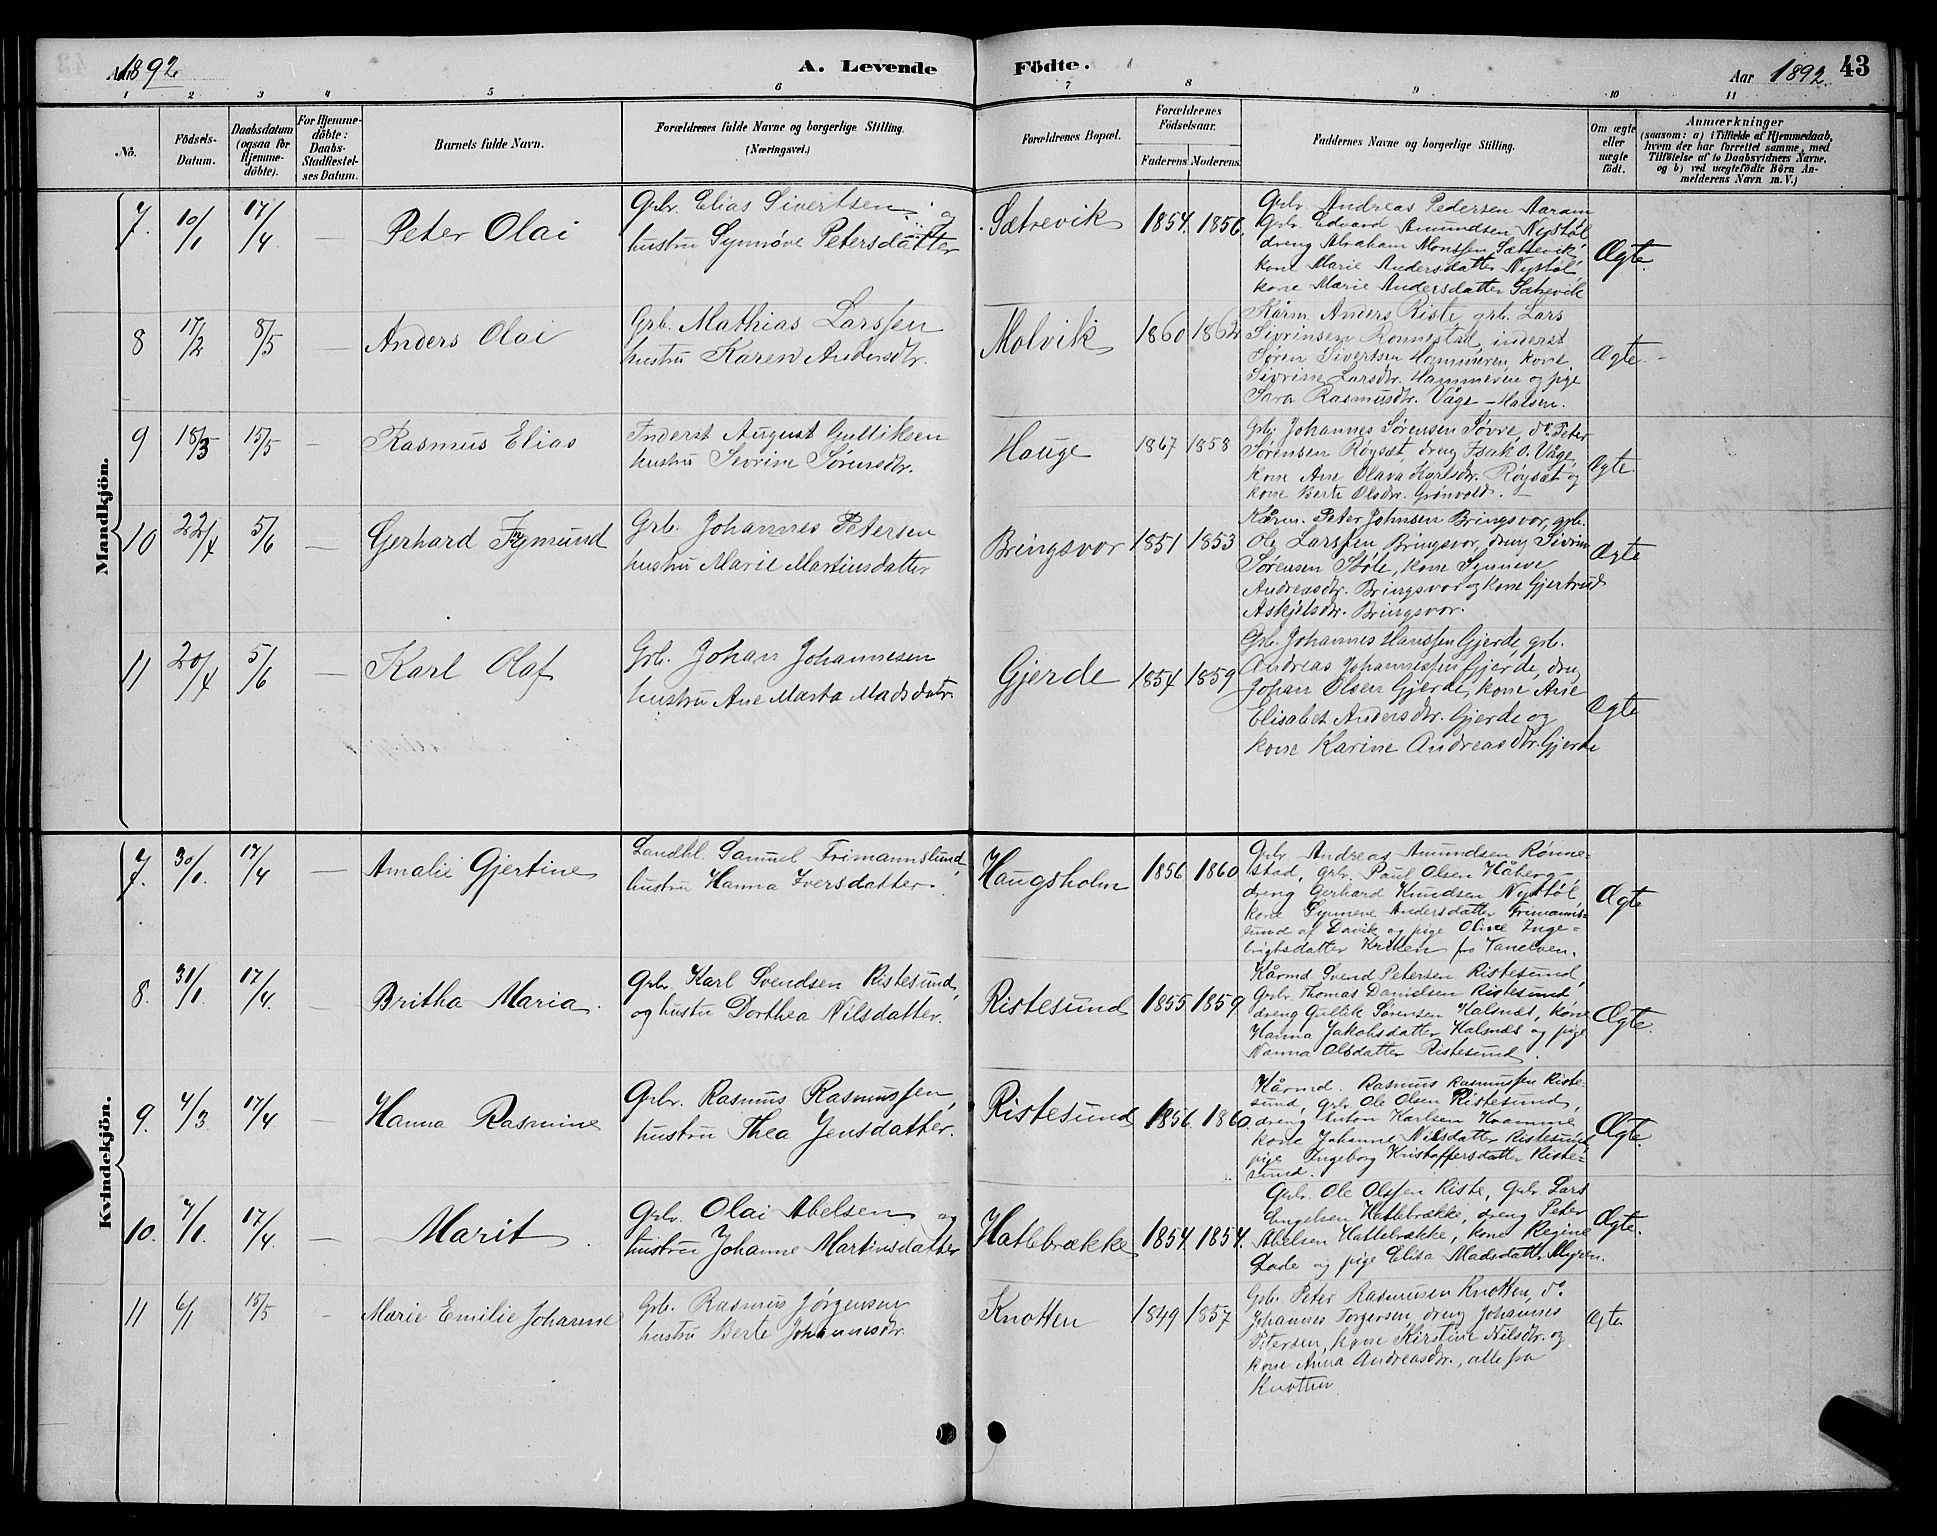 Aar 1892.
A. Levende
Födte.
Aar 1892.
43
1 2 3 4 5 6 7 8 9 10 11
No.
Födsels-
Datum.
Daabsdatum
(ogsaa for
Hjemme-
döbte).
For Hjemme-
döbte:
Daabs-
Stadfæstel-
ses Datum.
Barnets fulde Navn.
Forældrenes fulde Navne og borgerlige Stilling.
(Næringsvei.)
Forældrenes Bopæl.
Forældrenes
Födselsaar.
Faderens. Moderens.
Faddernes Navne og borgerlige Stilling.
Om ægte
eller
uægte
födt.
Anmærkninger
(saasom: a) i Tilfælde af Hjemmedaab,
hvem der har forrettet samme, med
Tilföielse af to Daabsvidners Navne,
og b) ved uægtefödte Börn An-
melderens Navn m. V.)
Mandkjön.
7. 10/1 17/4 — Peter Olai
Grbr. Elias Sivertsen og
hustru Synnøve Petersdatter
Sætrevik 1854. 1856.
Grbr. Andreas Pedersen Aaram
Grbr. Edvard Amundsen Nystøl
dreng Abraham Monssen Sætrevik,
kone Marie Andersdatter Nystøl,
kone Marie Andersdatter Sætrevik
Ægte.
8 17/2 8/5 — Anders Olai
Grb. Mathias Larssen
hustru Karen Andersdtr.
Molvik 1860 1862
Kårm. Anders Riste, grb. Lars
Sivrinsen Rønnestad, inderst
Søren Sivertsen Hammeren, kone
Sivrine Larsdtr. Hammeren og pige
Sara Rasmusdtr. Våge
Ægte.
9 18/3 15/5 — Rasmus Elias
Inderst August Gulliksen
hustru Sevrine Sørensdtr.
Hauge 1867 1858
Grb. Johannes Sørensen Søvre, do Peter
Sørensen Røyset, dreng Isak O. Våge,
kone Ane Olava Karlsdtr. Røysæt og
kone Berte Olsdtr. Grønvold.
Ægte
10 22/4 5/6 — Gerhard Ingmund
Grb. Johannes Petersen
hustru Marie Martinsdatter
Bringsvor 1851 1853
Kårm. Peter Johnsen Bringsvor, grb.
Ole Larssen Bringsvor, dreng Sivrin
Sørensen Støle, kone Synneve
Andreasdtr. Bringsvor og kone Gjertrud
Askjelsdtr. Bringsvor.
Ægte
11 20/4 5/6 — Karl Olaf
Grb. Johan Johannesen
hustru Ane Marta Madsdatr.
Gjerde 1854 1859
Grb. Johannes Hanssen Gjerde, grb.
Andreas Johannessen Gjerde, dreng
Johan Olsen Gjerde, kone Ane
Elisabet Andersdtr. Gjerde og
kone Karine Andreasdtr. Gjerde
Ægte
Kvindekjön.
7. 30/1. 17/4 — Amalie Gjertine
Landhl. Samuel Frimannslund,
hustru Hanna Iversdatter.
Haugsholm 1856 1860
Grbr. Andreas Amundsen Rønne-
stad, Grbr. Paul Olsen Håberg,
dreng Gerhard Knudsen Nystøl,
kone Synneve Andersdatter Frimanns-
lund af Davik og pige Oline Inge-
brigtsdatter fra
Ægte
8. 31/1. 17/4. — Britha Maria.
Grbr. Karl Svendsen Ristesund,
og hustru Dorthea Nilsdatter.
Ristesund 1855 1859
Kårmd Svend Petersen Ristesund,
Grbr. Thomas Danielsen Ristesund
dreng Gullik Sørensen Halsnæs, kone
Hanna Jakobsdatter Halsnæs og pige
Nanna Olsdatter Ristesund.
Ægte.
9. 4/3. 17/4 — Hanna Rasmine
Grbr. Rasmus Rasmussen,
hustru Thea Jensdatter.
Ristesund 1856. 1860.
Kårmd. Rasmus Rasmussen Riste-
sund, Grbr. Ole Olsen Ristesund,
dreng Anton Karlsen Kvamme
kone Johanne Nilsdatter Ristesund,
pige Ingeborg Kristoffersdatter Riste-
sund.
Ægte.
10. 7/1. 17/4. — Marit.
Grbr. Olai Abelsen og
hustru Johanne Martinsdatter
Hatlebrække 1854. 1854.
Grbr. Ole Olssen Riste, Grbr. Lars
Engelsen Hatlebrække, dreng Peter
Abelsen Hatlebrække, kone Regine
Lade og pige Elisa Madsdatter Myren.
Ægte.
11 6/1 15/5 — Marie Emilie Johanne
Grb. Rasmus Jørgensen
hustru Berte Johannesdtr.
Knotten 1849 1857
Grb. Peter Rasmusen Knotten, do
Johannes Torgersen, dreng Johannes
Petersen, kone Kirstine Nilsdtr. og
kone Anna Andreasdtr., alle fra
Knotten
Ægte